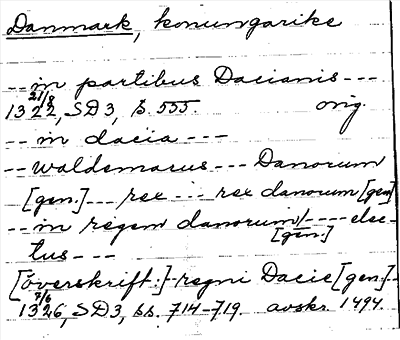 Danmark, konungarike
-- in partibus Dacianis ---
21/8
1322, SD3, s. 555. orig.
-- in dacia ---
-- waldemarus --- Danorum
[gen.] --- rex --- rex danorum [gen.]
-- in regem danorum/---- elec-
[gen.]
tus ---
[överskrift:] regni Dacie [gen.] --
7/6
1326, SD3, ss. 714-719. avskr. 1494.